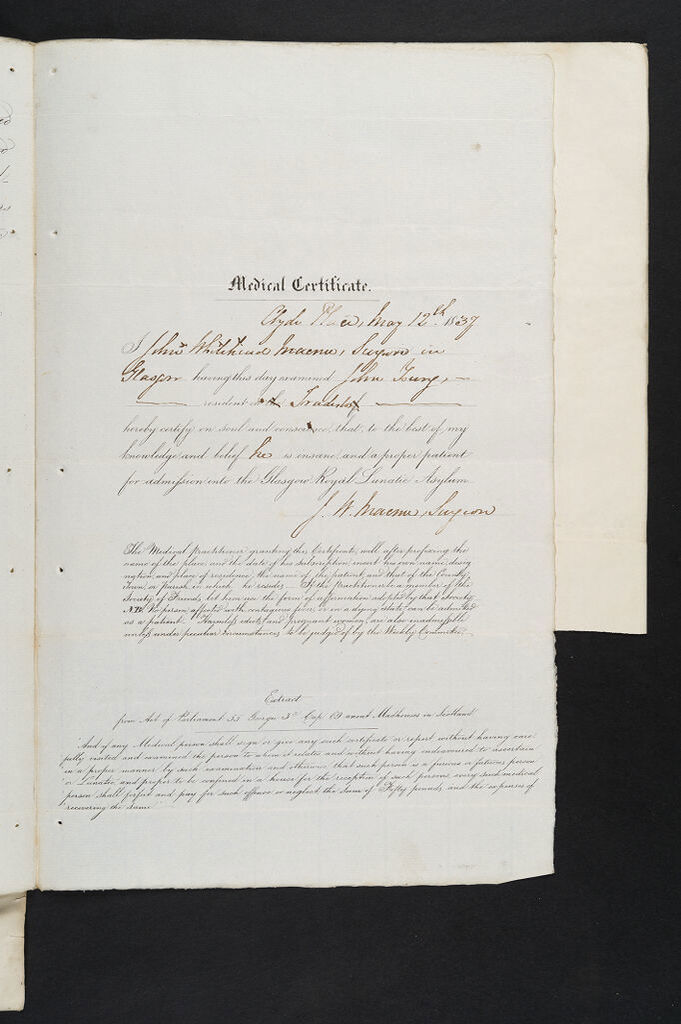 Medical Certificate.
Clyde Place, May 12th 1837
I John Whitehead Macnee, Surgeon in
Glasgow having this day examined John
resident in the Tradeston
hereby certify on soul and conscience, that, to the best of my
knowledge and belief he is insane, and a proper patient
for admission into the Glasgow Royal Lunatic Asylum
J. W. Macnee, Surgeon
The Medical practitioner granting this Certificate, will, after prefixing the
name of the place, and the date of his subscription, insert his own name, desig
nation, and place of residence, the name of the patient, and that of the County,
Town, or Parish, in which he resides. If the Practitioner be a member of the
Society of Friends, let him use the form of affirmation adopted by that Society.
N.B. No person affected with contagious fever, or in a dying state, can be admitted
as a patient. Harmless idiots, and pregnant women, are also inadmissible
unless under peculiar circumstances, to be judged of by the Weekly Committee.
Extract
from Act of Parliament 55 George 3d Cap. 69 anent Madhouses in Scotland
"And if any Medical person shall sign or give any such certificate or report without having care
fully visited and examined the person to whom it relates and without having endeavoured to ascertain
in a proper manner by such examination and otherwise that such person is a furious or fatuous person
or Lunatic, and proper to be confined in a house for the reception of such persons every such medical
person shall forfeit and pay for such offence or neglect the sum of Fifty pounds, and the expenses of
recovering the same